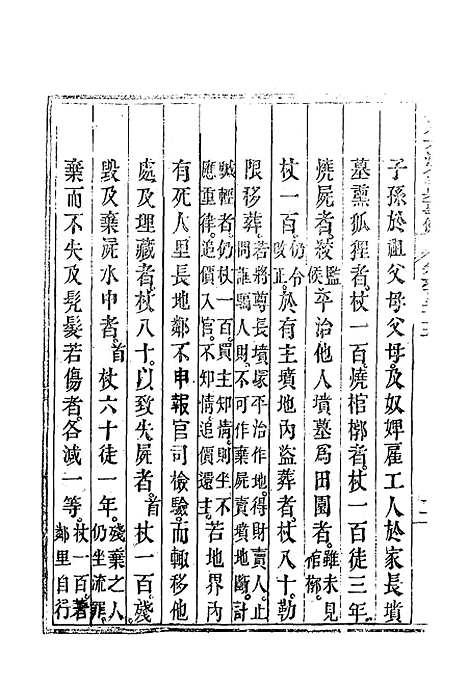 子孫於祖父母父母及奴婢雇工人於家長墳
墓熏狐狸者杖一百燒棺槨者杖一百徒三年
燒屍者絞監候平治他人墳墓為田園者雖未見棺槨
杖一百仍令改正於有主墳地內盜葬者杖八十勒
限移葬若將尊長墳塚平治作地得財賣人止問誆騙人財不可作棄屍賣墳地斷計
贓輕者仍杖一百買主知情則坐不應重律追價入官不知情追價還主若地界內
有死人里長地鄰不申報官司檢驗而輒移他
處及埋藏者杖八十以致失屍者首杖一百殘
毀及棄屍水中者首杖六十徒一年殘棄之人仍坐流罪
棄而不失及髡髮若傷者各減一等杖一百著鄰里自行